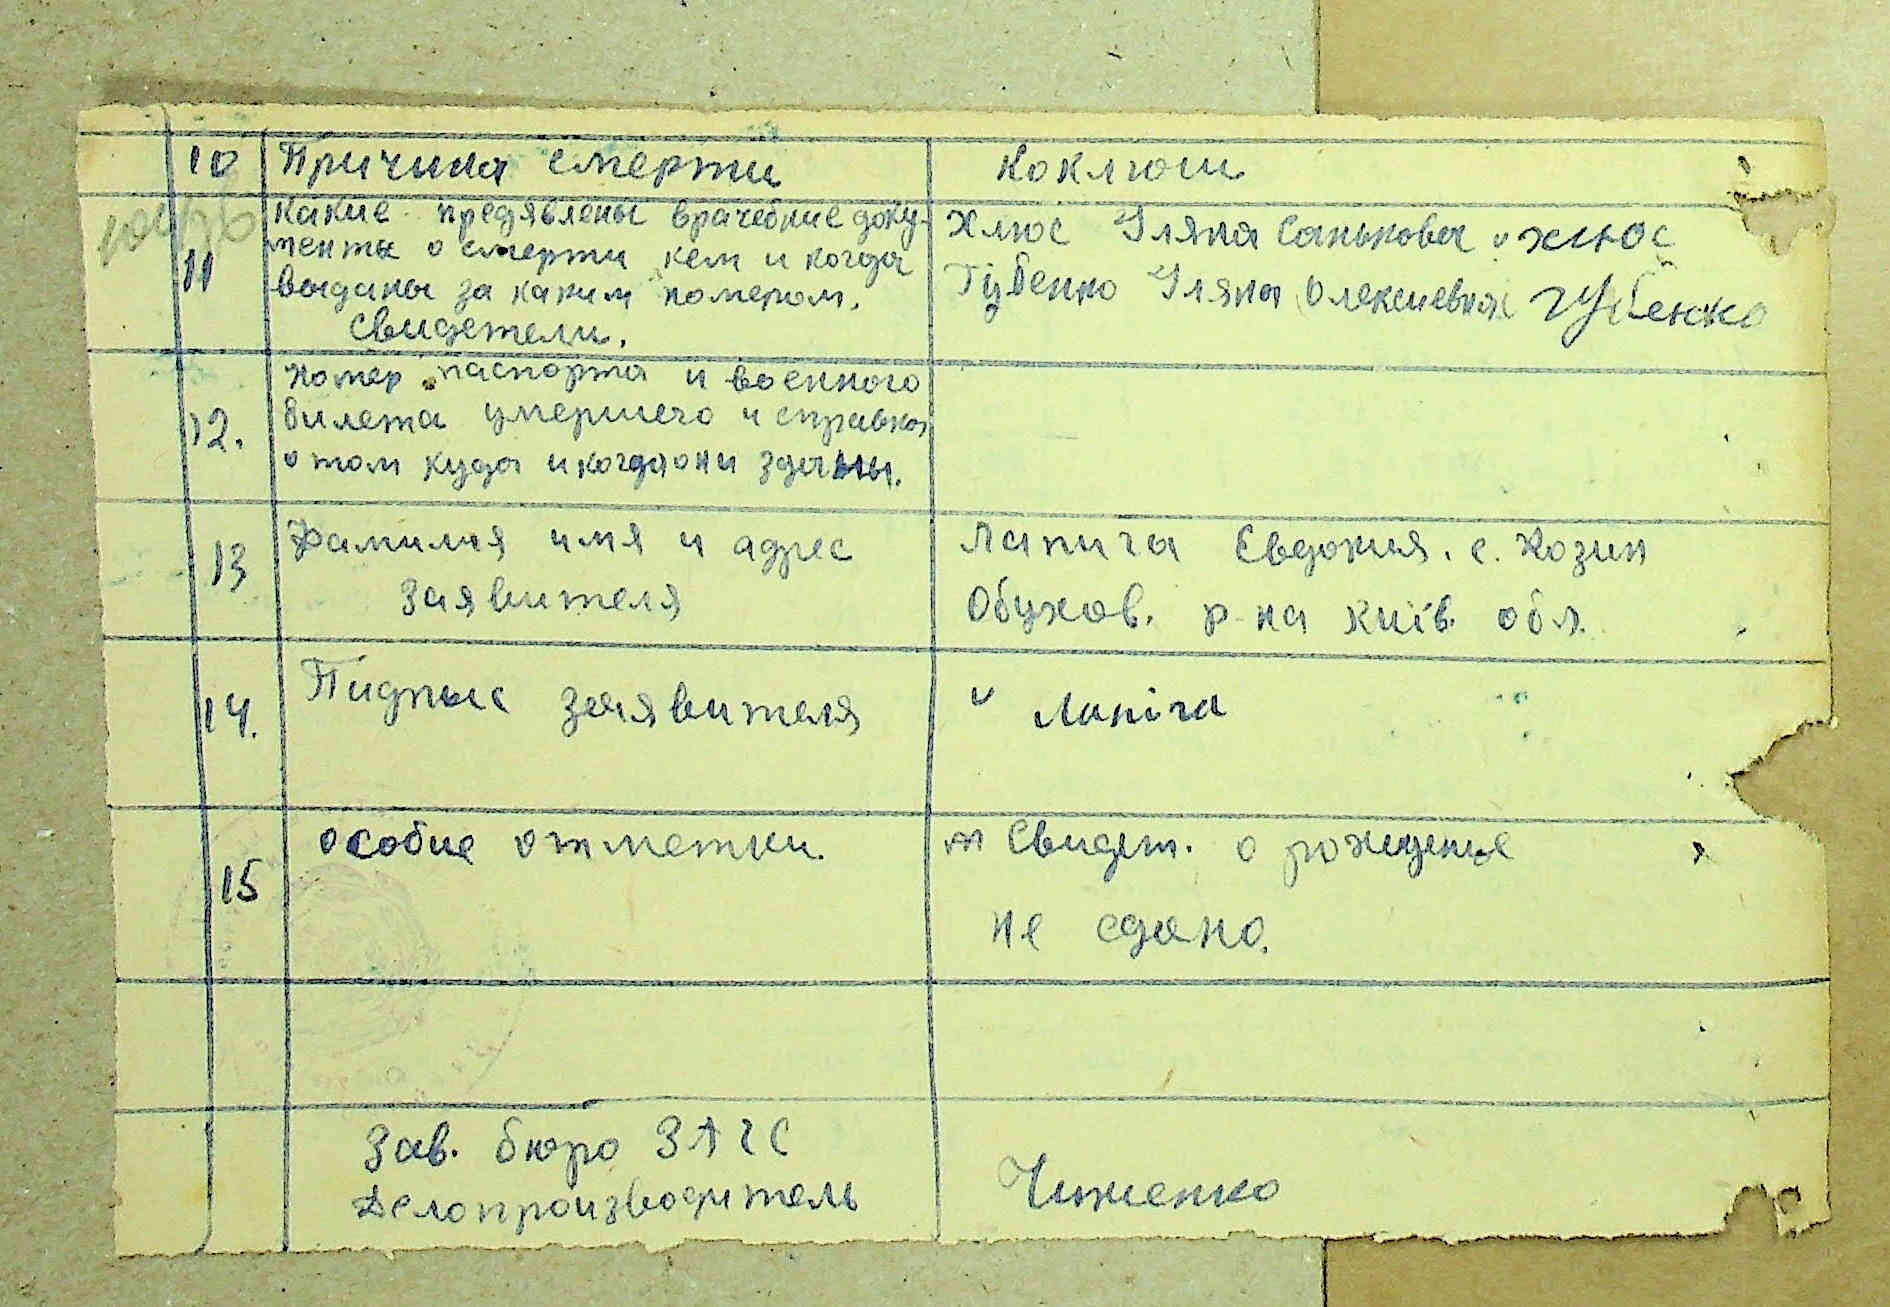 10 Причина смерти Коклюш
Какие предявлены врачебние доку-
менты о смерти кем и когда
11 выданы за каким номером.
Свидетели.
Хлюс Уляна Саньковна хлюс
Губенко Уляна Олексиевна Губенко
Номер паспорта и военного
12. билета умершего и справка
о том куда и когда они зданы.
13 Фамилия имя и адрес
заявителя
Лапига Евдокия. с. Козин
Обухов. р-на Київ. обл.
14. Пидпыс заявителя Лапіга
15 особие отметки.
Свидет. о рожденье
не сдано.
Зав. бюро ЗАГС
Делопроизводитель Чиженко